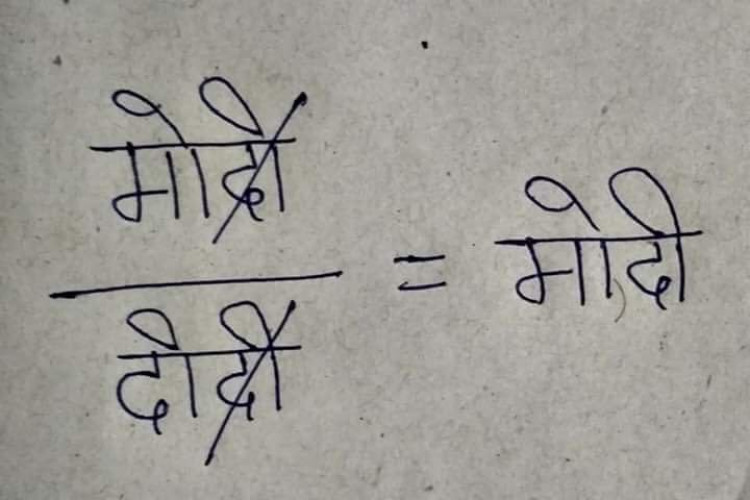 मोदी
दीदी
= मोदी